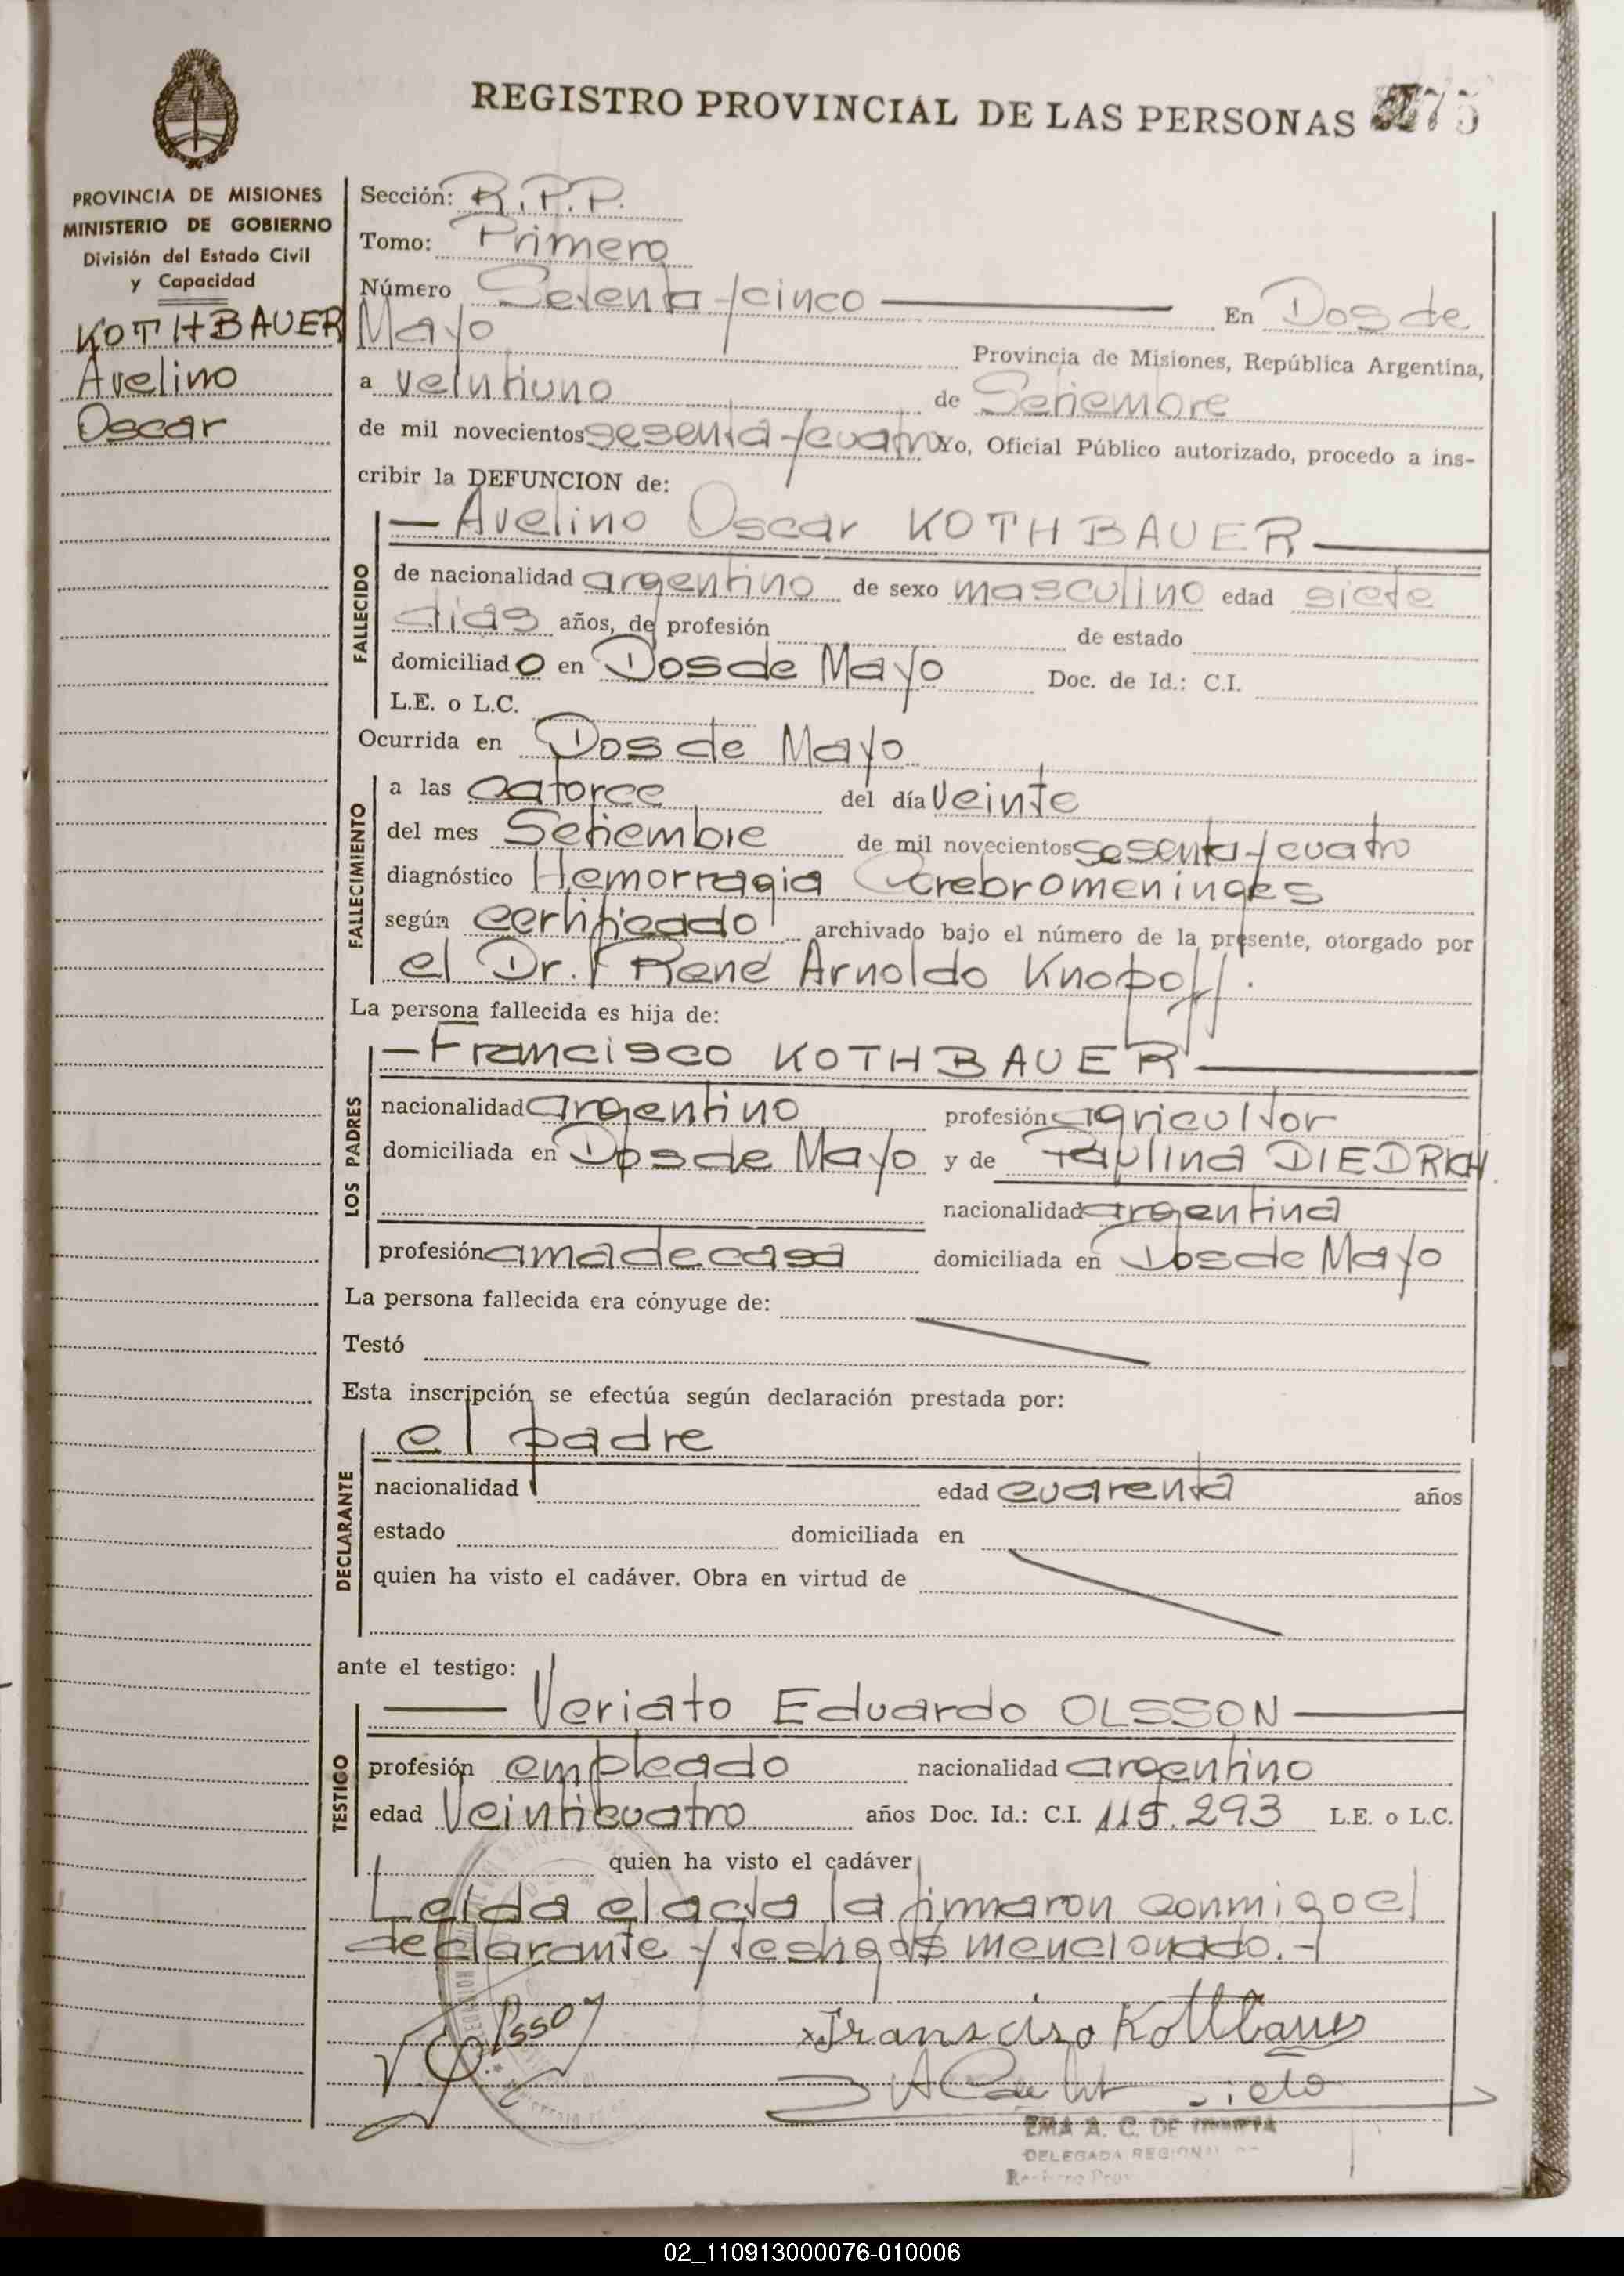 REGISTRO PROVINCIAL DE LAS PERSONAS 75
PROVINCIA DE MISIONES
MINISTERIO DE GOBIERNO
División del Estado Civil
y Capacidad
KOTHBAUER
Avelino
Oscar
Sección: R.P.P.
Tomo: Primero
Número Setenta y cinco En Dos de
Mayo Provincia de Misiones, República Argentina,
a veintiuno de Setiembre
de mil novecientos sesenta y cuatro Yo, Oficial Público autorizado, procedo a ins-
cribir la DEFUNCION de:
— Avelino Oscar KOTHBAUER —
FALLECIDO
de nacionalidad argentino de sexo masculino edad siete
dias años, de profesión de estado
domiciliado en Dos de Mayo Doc. de Id.: C.I.
L.E. o L.C.
Ocurrida en Dos de Mayo
FALLECIMIENTO
a las catorce del día veinte
del mes Setiembre de mil novecientos sesenta y cuatro
diagnóstico Hemorragia Cerebromeninges
según certificado archivado bajo el número de la presente, otorgado por
el Dr. René Arnoldo Knopoff.
La persona fallecida es hija de:
LOS PADRES
— Francisco KOTHBAUER —
nacionalidad argentino profesión agricultor
domiciliada en Dos de Mayo y de Paulina DIEDRICH.
nacionalidad argentina
profesión ama de casa domiciliada en Dos de Mayo
La persona fallecida era cónyuge de:
Testó
Esta inscripción se efectúa según declaración prestada por:
DECLARANTE
el padre
nacionalidad edad cuarenta años
estado domiciliada en
quien ha visto el cadáver. Obra en virtud de
ante el testigo:
TESTIGO
— Veriato Eduardo OLSSON —
profesión empleado nacionalidad argentino
edad Veinticuatro años Doc. Id.: C.I. 115.293 L.E. o L.C.
quien ha visto el cadáver
Leida el acta la firmaron conmigo el
declarante y testigos mencionado.-
V. Olsson
x Franzciso Kothbauer
EMA A. C. DE
DELEGADA REGIONAL
02_110913000076-010006